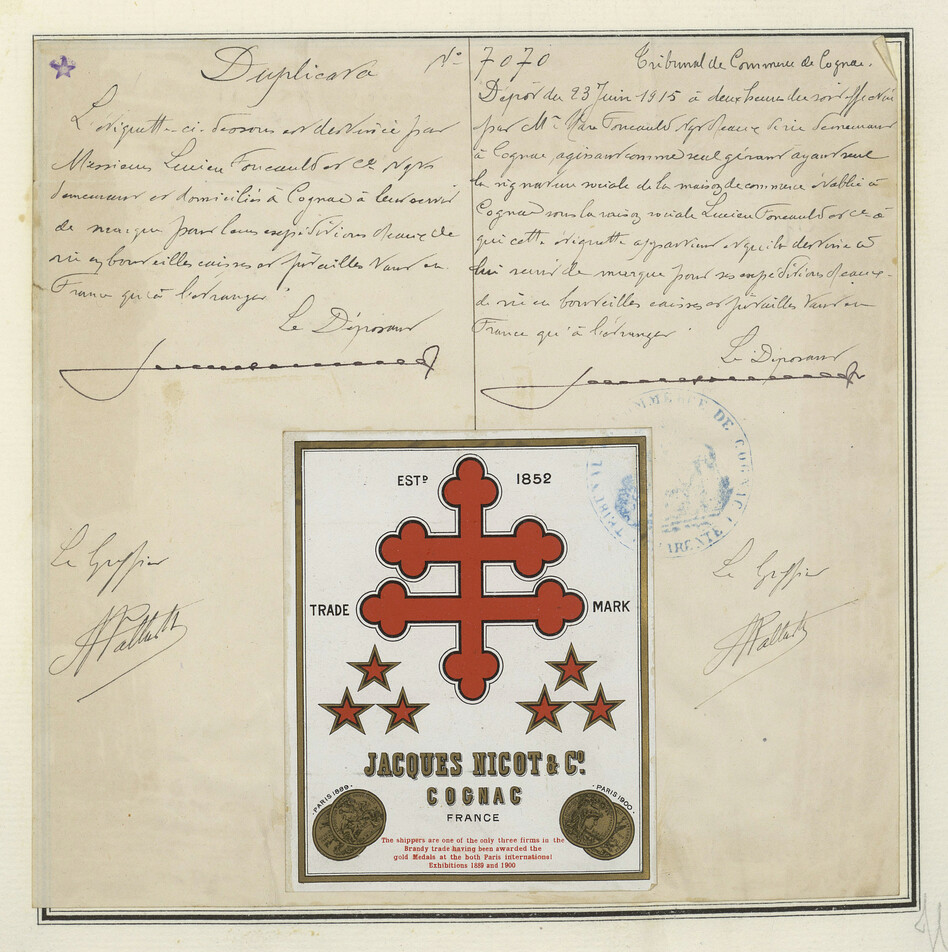 Duplicata
L'étiquette ci-dessous est destinée par
Messieurs Lucien Foucauld et Cie Négts
demeurant et domiciliés à Cognac à leur servir
de marque pour leurs expéditions d'eaux de
vie en bouteilles caisses et futailles tant en
France qu'à l'étranger
Le Déposant
No 7070 Tribunal de Commerce de Cognac.
Dépôt du 23 Juin 1915 à deux heures du soir effectué
par Mr Foucauld Négt d'eaux de vie demeurant
à Cognac, agissant comme seul gérant ayant seul
la signature sociale de la maison de commerce établie à
Cognac sous la raison sociale Lucien Foucauld et Cie à
qui cette étiquette appartient et qu'elle destine à
lui servir de marque pour ses expéditions d'eaux-
de vie en bouteilles caisses et futailles tant en
France qu'à l'étranger
Le Déposant
TRIBUNAL DE COMMERCE DE COGNAC
CHARENTE
Le Greffier
Le Greffier
ESTD 1852
TRADE MARK
JACQUES NICOT & Co.
COGNAC
FRANCE
PARIS 1889
PARIS 1900
The shippers are one of the only three firms in the
Brandy trade having been awarded the
gold Medals at the both Paris international
Exhibitions 1889 and 1900